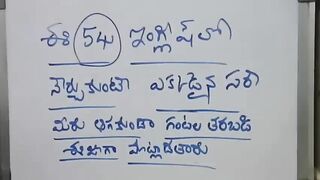 ఈ 54 ఇంగ్లీష్‌లో
నేర్చుకుంటే ఎక్కడైన సరే
మీరు ఆగకుండా గంటల తరబడి
ఈజీగా మాట్లాడేతారు